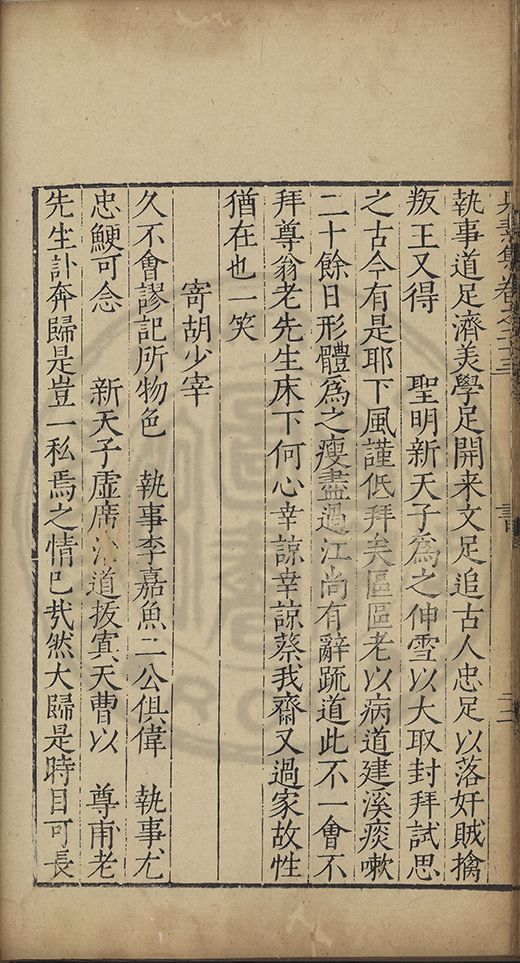 見素集卷之 書
執事道足濟美學足開来文足追古人忠足以落奸賊擒
叛王又得　聖明新天子爲之伸雪以大取封拜試思
之古今有是耶下風謹低拜矣區區老以病道建溪痰嗽
二十餘日形體爲之瘦盡過江尚有辭疏道此不一會不
拜尊翁老先生床下何心幸諒幸諒蔡我齋又過家故性
猶在也一笑
寄胡少宰
久不會謬記所物色　執事李嘉魚二公俱偉　執事尤
忠鯁可念　新天子虛席治道扳寘天曹以　尊甫老
先生訃奔歸是豈一私焉之情已哉然大歸是時目可長